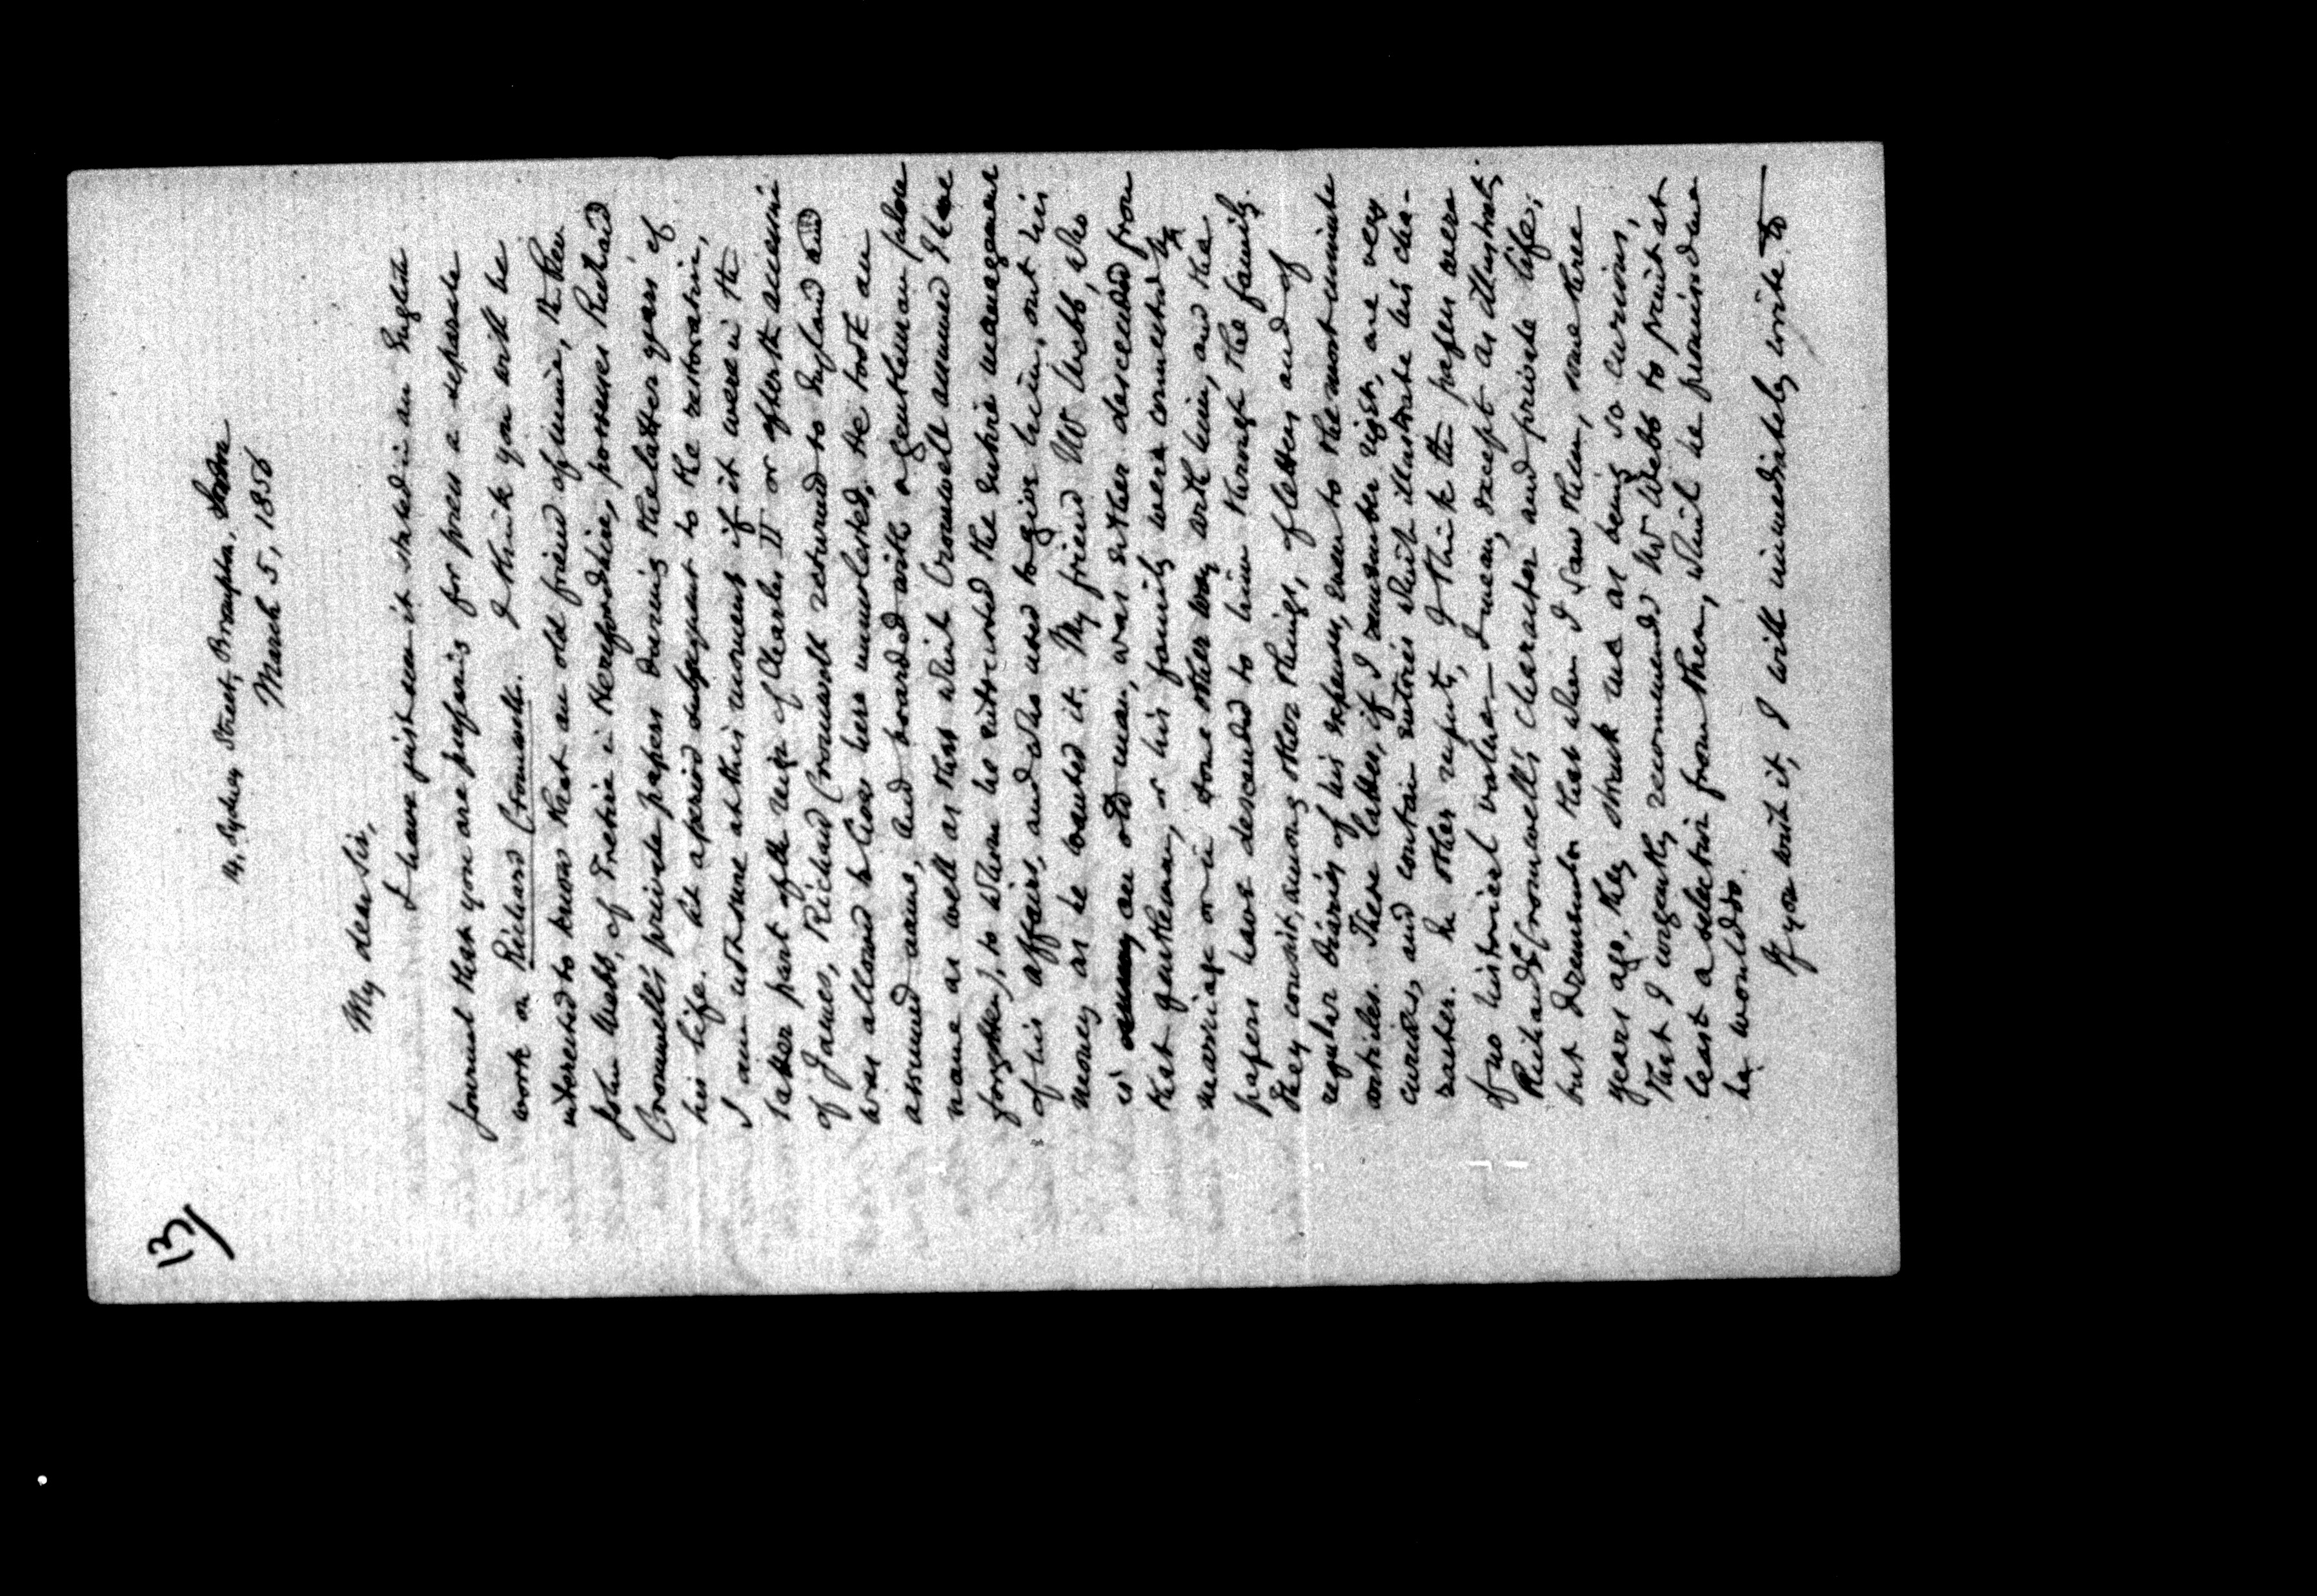 131
14, Sydney Street, Brompton, London
March 5, 1856
My dear Sir,
I have just seen it stated in an English
journal that you are preparing for press a separate
work on Richard Cromwell. I think you will be
interested to know that an old friend of mine, the Rev
John Webb, of Tretire in Herefordshire, possesses Richard
Cromwell's private papers during the latter years of
his life. At a period subsequent to the restoration,
I am not sure at this moment if it were in the
latter part of the reign of Charles II or after the accession
of James, Richard Cromwell returned to England and
was allowed to live here unmolested. He took an
assumed name, and boarded with a gentleman whose
name as well as that which Cromwell assumed I have
forgotten), to whom he entrusted the entire management
of his affairs, and who used to give him, out his
money as he wanted it. My friend Mr Webb, who
is an old man, was either descended from
that gentleman, or his family were connected by
marriage or in some other way with him, and the
papers have descended to him through the family.
They consist, among other things, of letters and of
regular diaries of his expenses, even to the most minute
articles. These latter, if I remember right, are very
curious, and contain entries which illustrate his cha-
racter. In other respects, I think the papers were
of no historical value — I mean, except as illustrating
Richard Cromwell's character and private life;
but I remember that when I saw them, some three
years ago, they struck me as being so curious,
that I urgently recommended Mr Webb to print at
least a selection from them, which he promised me
he would do.
If you wish it, I will immediately write to